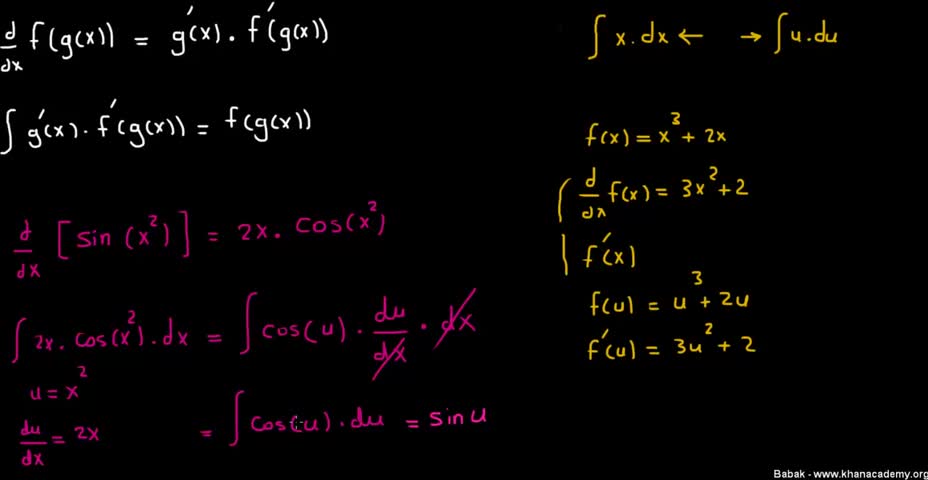 d/dx f(g(x)) = g'(x) · f'(g(x))
∫ g'(x) · f'(g(x)) = f(g(x))
d/dx [sin (x²)] = 2x · cos(x²)
∫ 2x · cos(x²) · dx = ∫ cos(u) · du/dx · dx
u = x²
du/dx = 2x
= ∫ cos(u) · du = sin u
∫ x · dx ← → ∫ u · du
f(x) = x³ + 2x
d/dx f(x) = 3x² + 2
f'(x)
f(u) = u³ + 2u
f'(u) = 3u² + 2
Babak - www.khanacademy.org